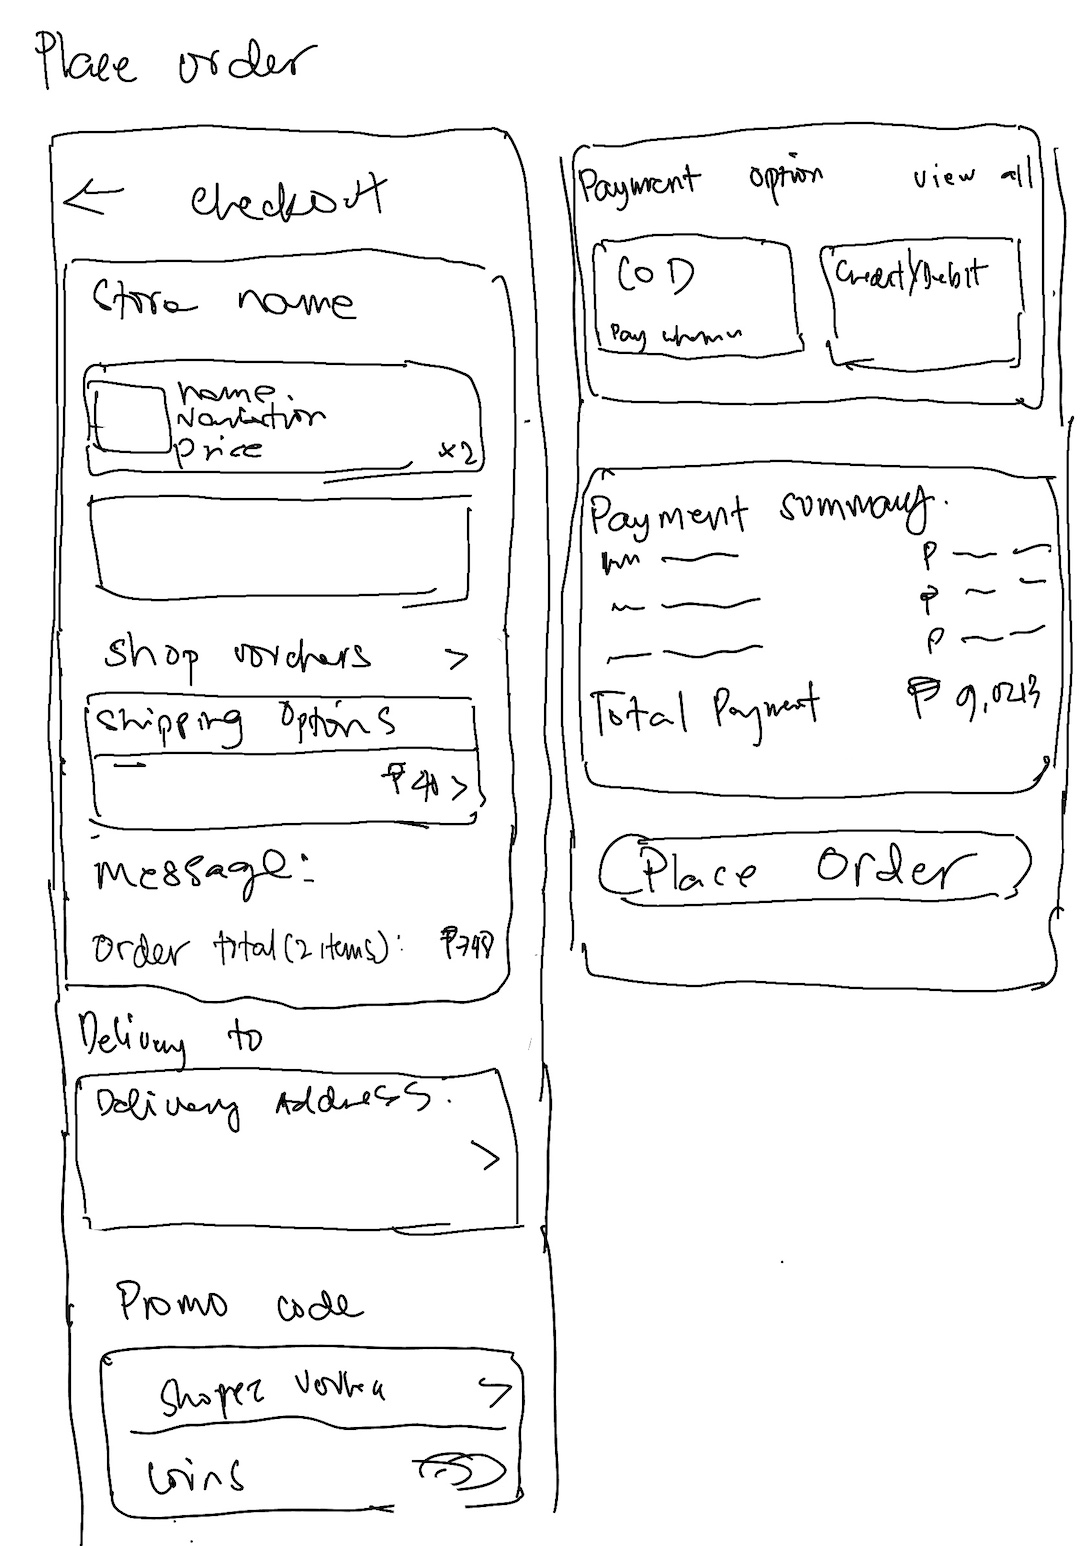 Place order
← checkout
Store name
name
Variation
price
x2
Shop vorchers >
Shipping Options
₱40 >
Message:
Order total (2 items): ₱748
Delivery to
Delivery Address.
>
Promo code
>
Coins
Payment option view all
COD
Credit/Debit
Pay
Payment summary.
P
P
P
Total Payment ₱
Place Order